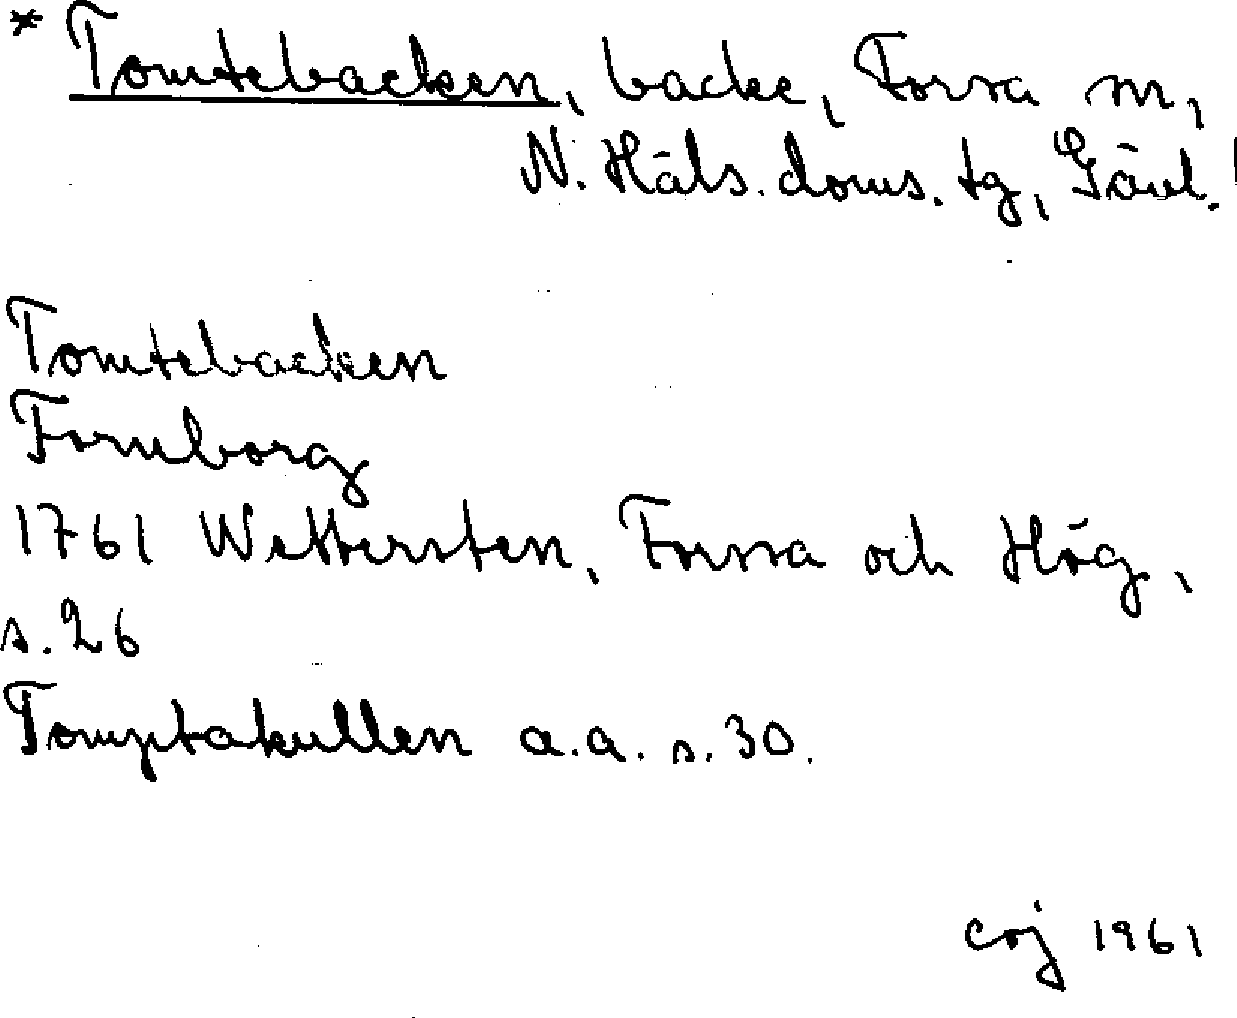 * Tomtebacken, backe, Forsa sn,
N. Häls. doms. tg, Gävl.
Tomtebacken
Fornborg
1761 Wettersten, Forssa och Hög,
s. 26
Tomptakullen a.a. s. 30.
coj 1961